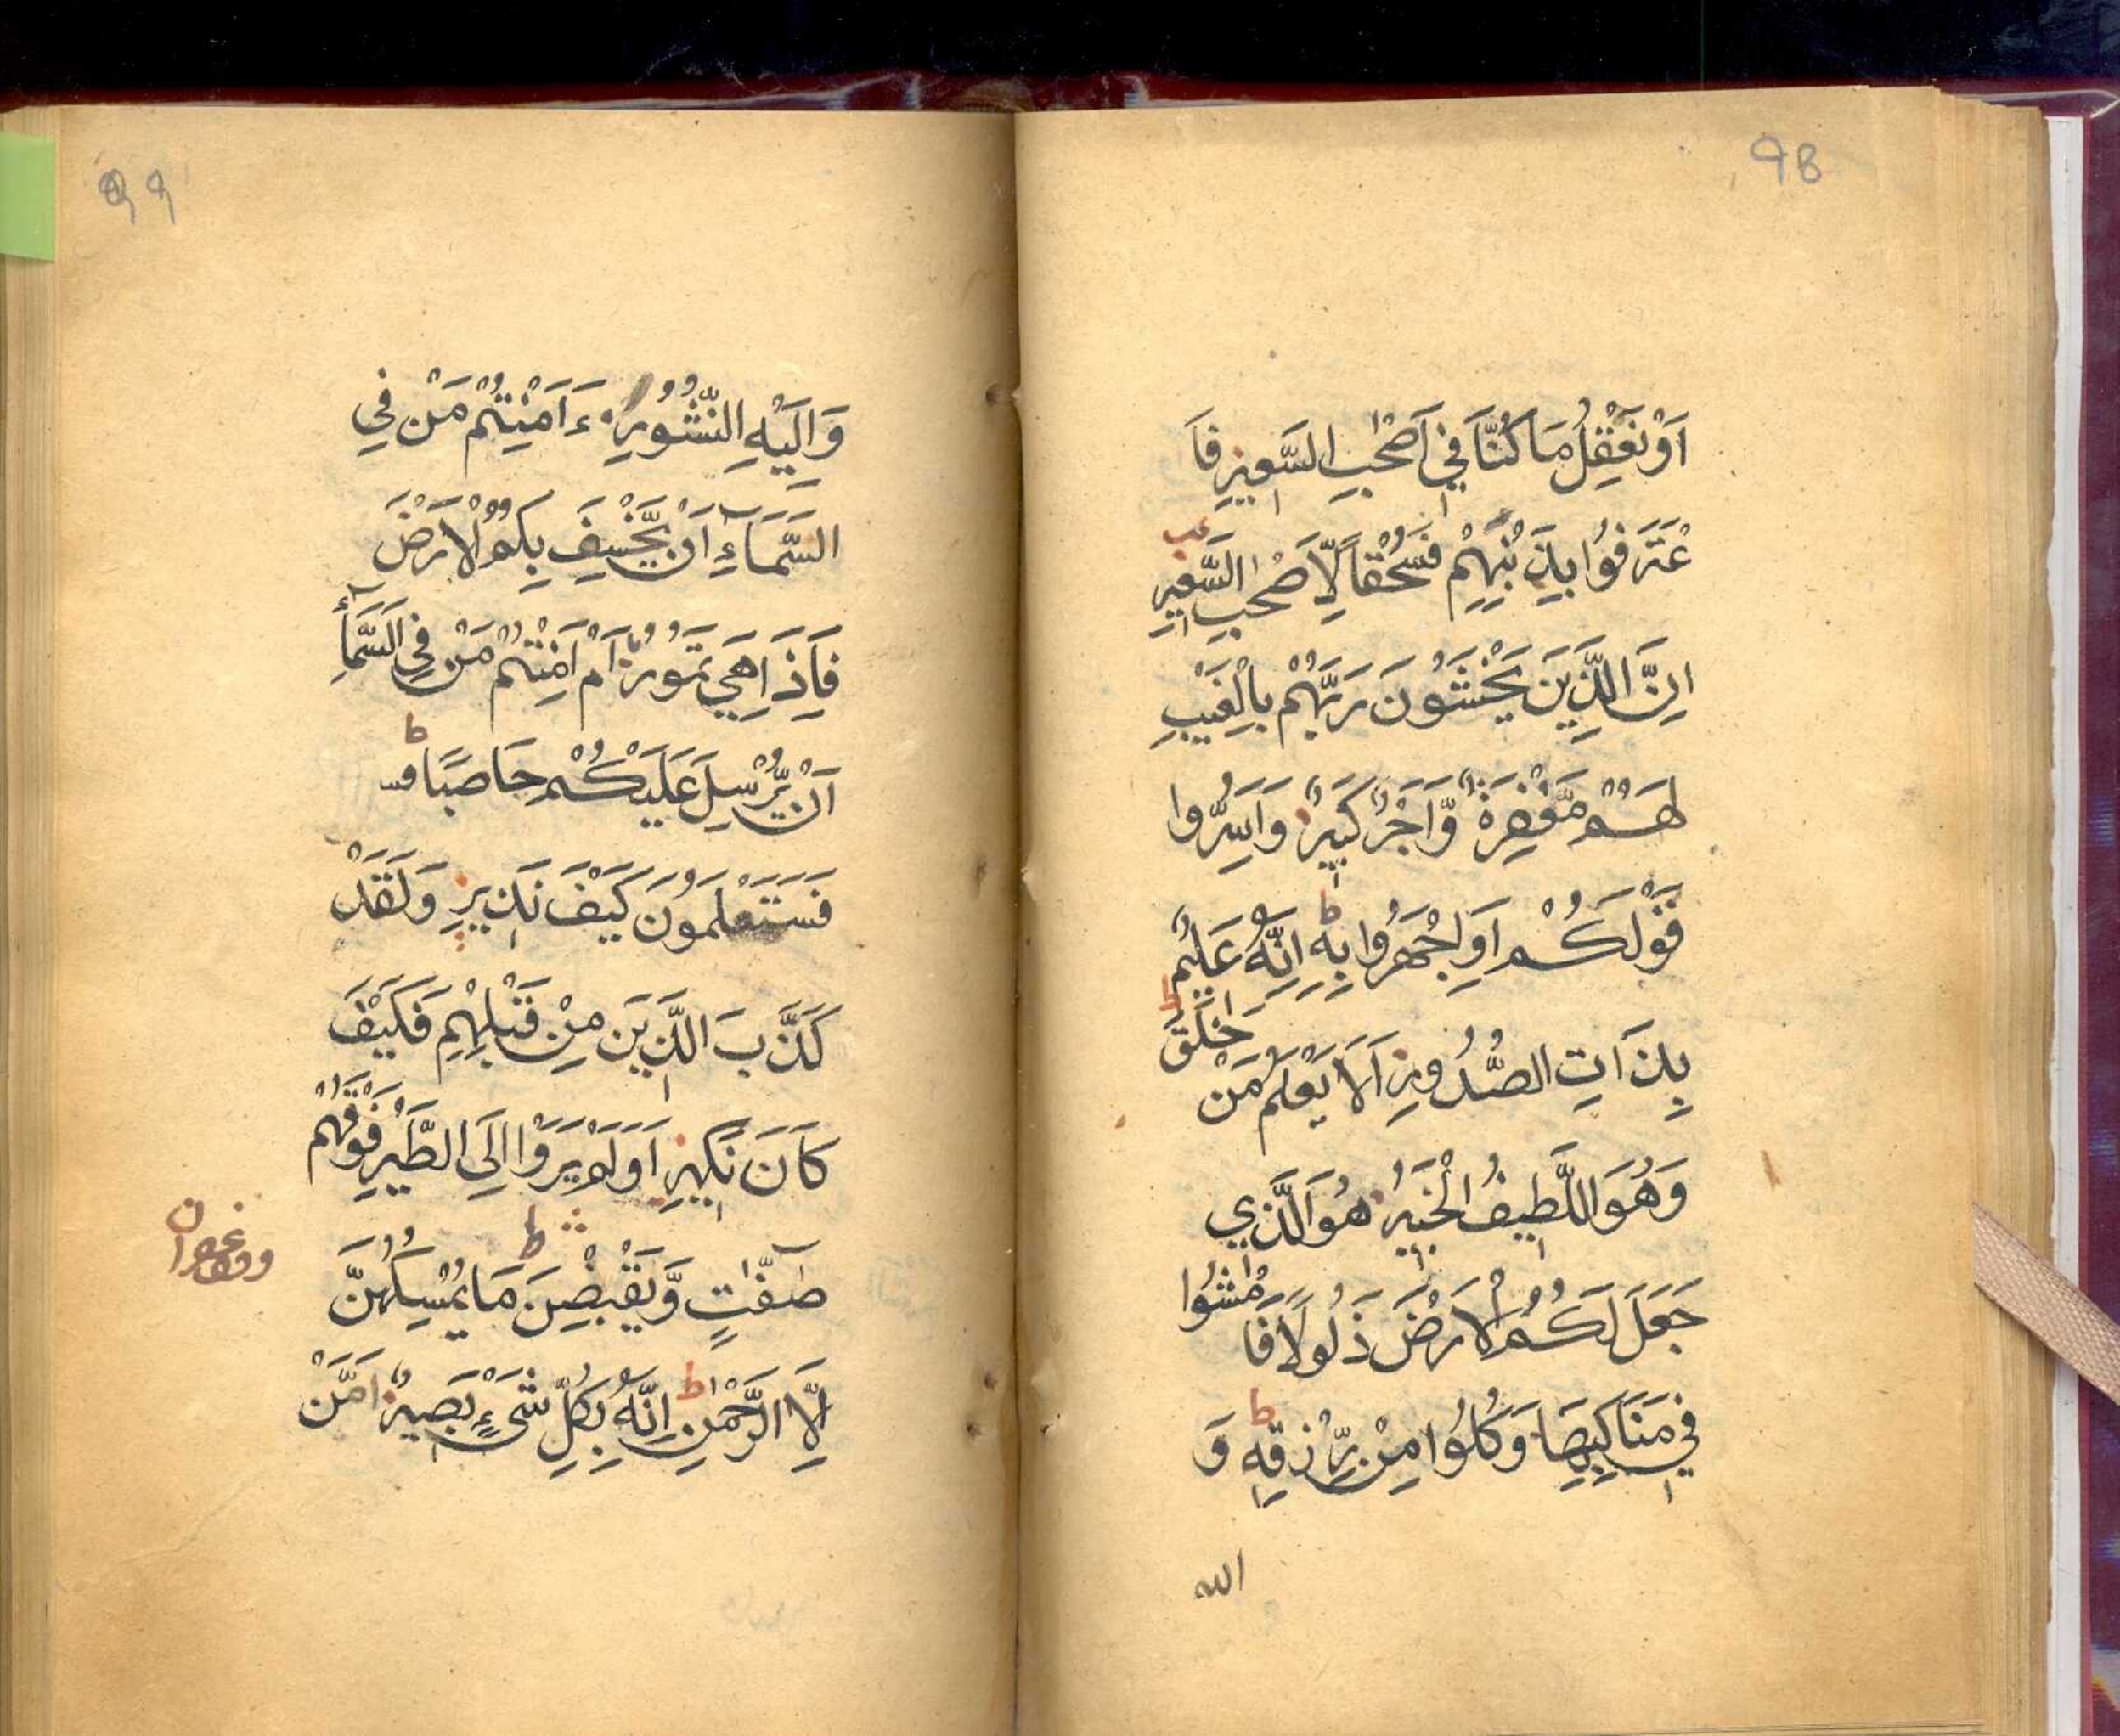 98
اَوْ نَعْقِلُ مَا كُنَّا فِيْ اَصْحٰبِ السَّعِيْرِ فَا
عْتَرَفُوْا بِذَنْۢبِهِمْ فَسُحْقًا لِّاَصْحٰبِ السَّعِيْرِ
اِنَّ الَّذِيْنَ يَخْشَوْنَ رَبَّهُمْ بِالْغَيْبِ
لَهُمْ مَّغْفِرَةٌ وَّاَجْرٌ كَبِيْرٌ وَاَسِرُّوا
قَوْلَكُمْ اَوِ اجْهَرُوا بِهٖ ط اِنَّهٗ عَلِيْمٌ
بِذَاتِ الصُّدُوْرِ اَلَا يَعْلَمُ مَنْ خَلَقَ ط
وَهُوَ اللَّطِيْفُ الْخَبِيْرُ هُوَ الَّذِي
جَعَلَ لَكُمُ الْاَرْضَ ذَلُولًا فَامْشُوا
فِيْ مَنَاكِبِهَا وَكُلُوْا مِنْ رِّزْقِهٖ ط وَ
الله
99
وَاِلَيْهِ النُّشُوْرُ ءَاَمِنْتُمْ مَنْ فِي
السَّمَآءِ اَنْ يَّخْسِفَ بِكُمُ الْاَرْضَ
فَاِذَا هِيَ تَمُوْرُ اَمْ اَمِنْتُمْ مَنْ فِي السَّمَآءِ
اَنْ يُّرْسِلَ عَلَيْكُمْ حَاصِبًا ط فسـ
فَسَتَعْلَمُوْنَ كَيْفَ نَذِيْرِ وَلَقَدْ
كَذَّبَ الَّذِيْنَ مِنْ قَبْلِهِمْ فَكَيْفَ
كَانَ نَكِيْرِ اَوَلَمْ يَرَوْا اِلَى الطَّيْرِ فَوْقَهُمْ
صٰٓفّٰتٍ وَّيَقْبِضْنَ ط مَا يُمْسِكُهُنَّ
اِلَّا الرَّحْمٰنُ ط اِنَّهٗ بِكُلِّ شَيْءٍ بَصِيْرٌ اَمَّنْ